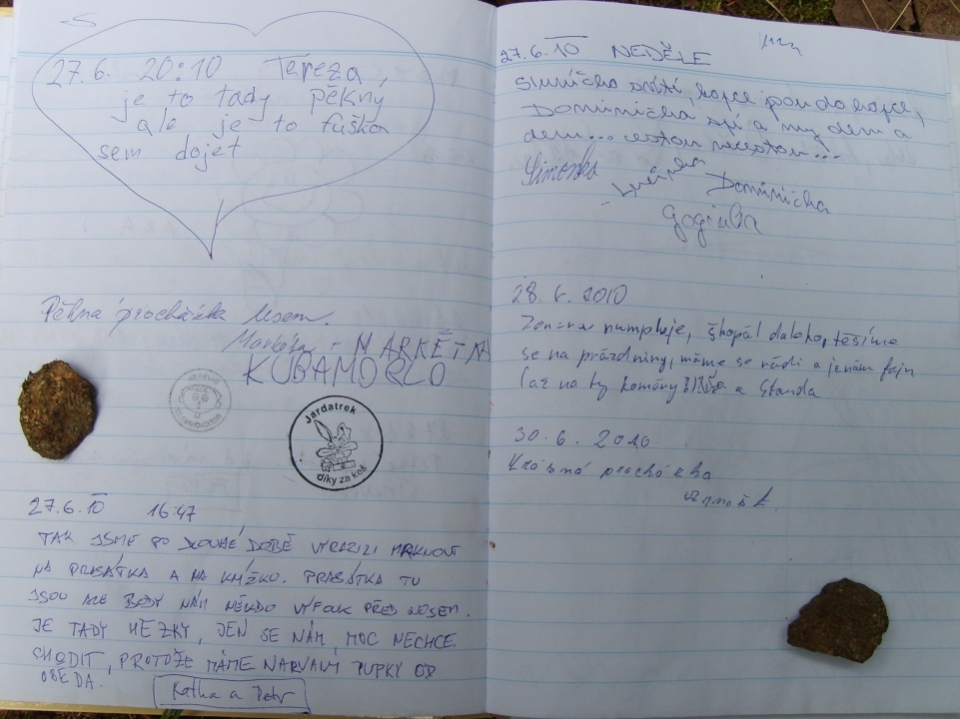 27.6. 20:10 Tereza,
je to tady pěkný
ale je to fuška
sem dojet
Pěkná procházka lesem.
Markéta - MARKÉTNA
KUBAMORLO
Jardatrek
díky za keš
27.6.10 16:47
TAK JSME PO DLOUHÉ DOBĚ VYRAZILI MRKNOUT
NA PRASÁTKA A NA KNÍŽKO. PRASÁTKA TU
JSOU ALE BODY NÁM NĚKDO VYFOUK PŘED NOSEM.
JE TADY HEZKY, JEN SE NÁM, MOC NECHCE
CHODIT, PROTOŽE MÁME NARVANÝ PUPKY OD
OBĚDA.
Katka a Petr
27.6.10 NEDĚLE
Sluníčko svítí, kopce jsou do kopce,
Dominička spí a my jdem a
jdem... cestou necestou...
Simonka
Dominička
28.6.2010
se na prázdniny, máme se rádi a je nám fajn
(až na ty komáry) a Standa
30.6.2010
Krásná procházka